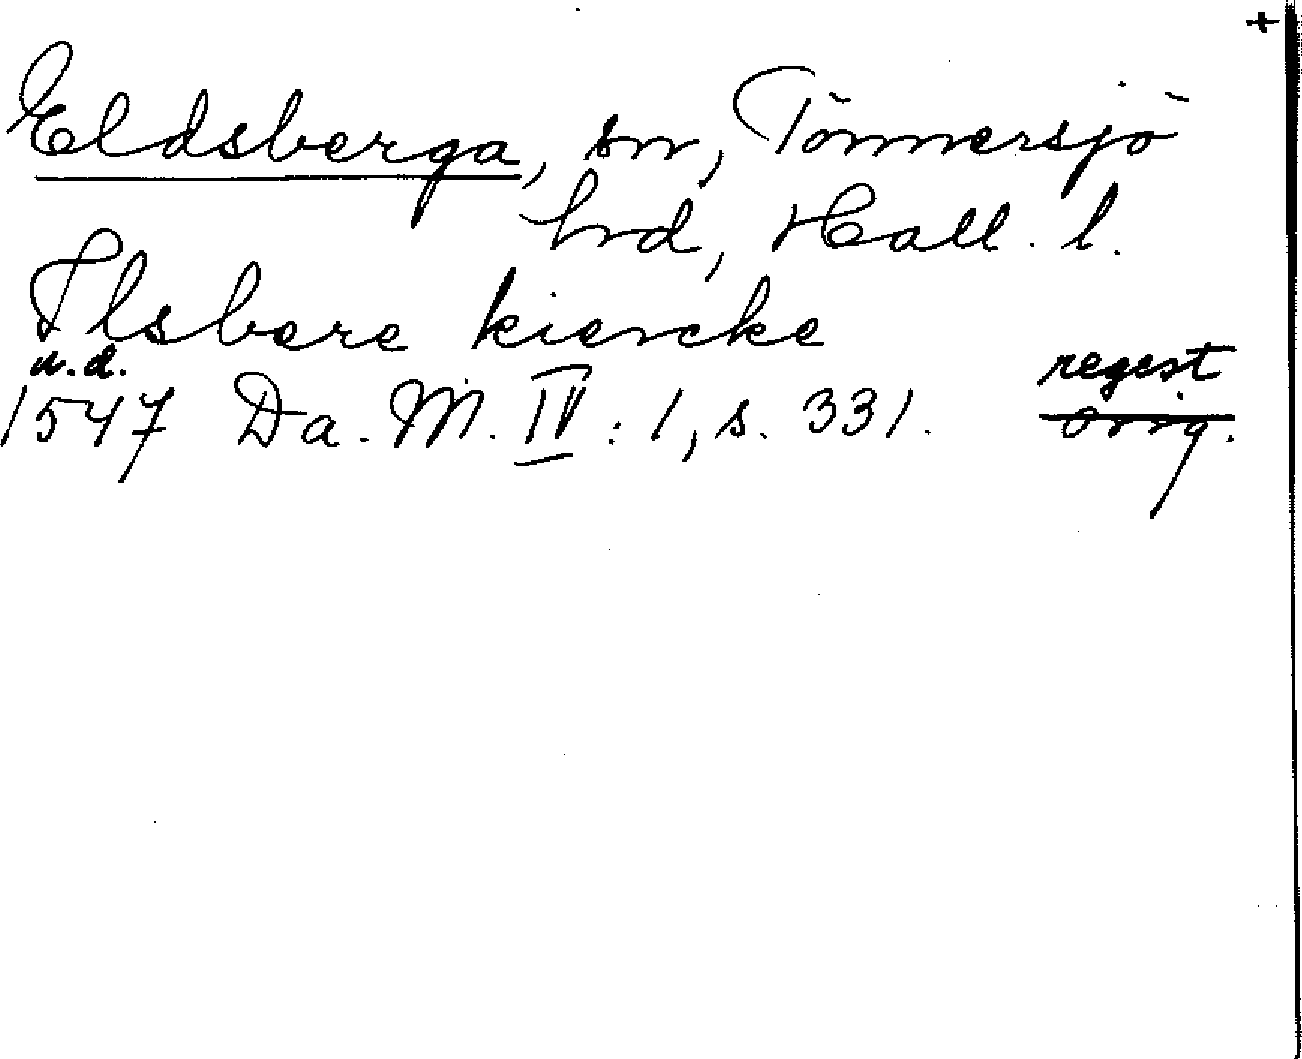 +
Eldsberga, sn, Tönnersjö
hrd, Hall. l.
Elsbere kiercke
u.d. regest
1547 Da. M. IV: 1, s. 331. orig.